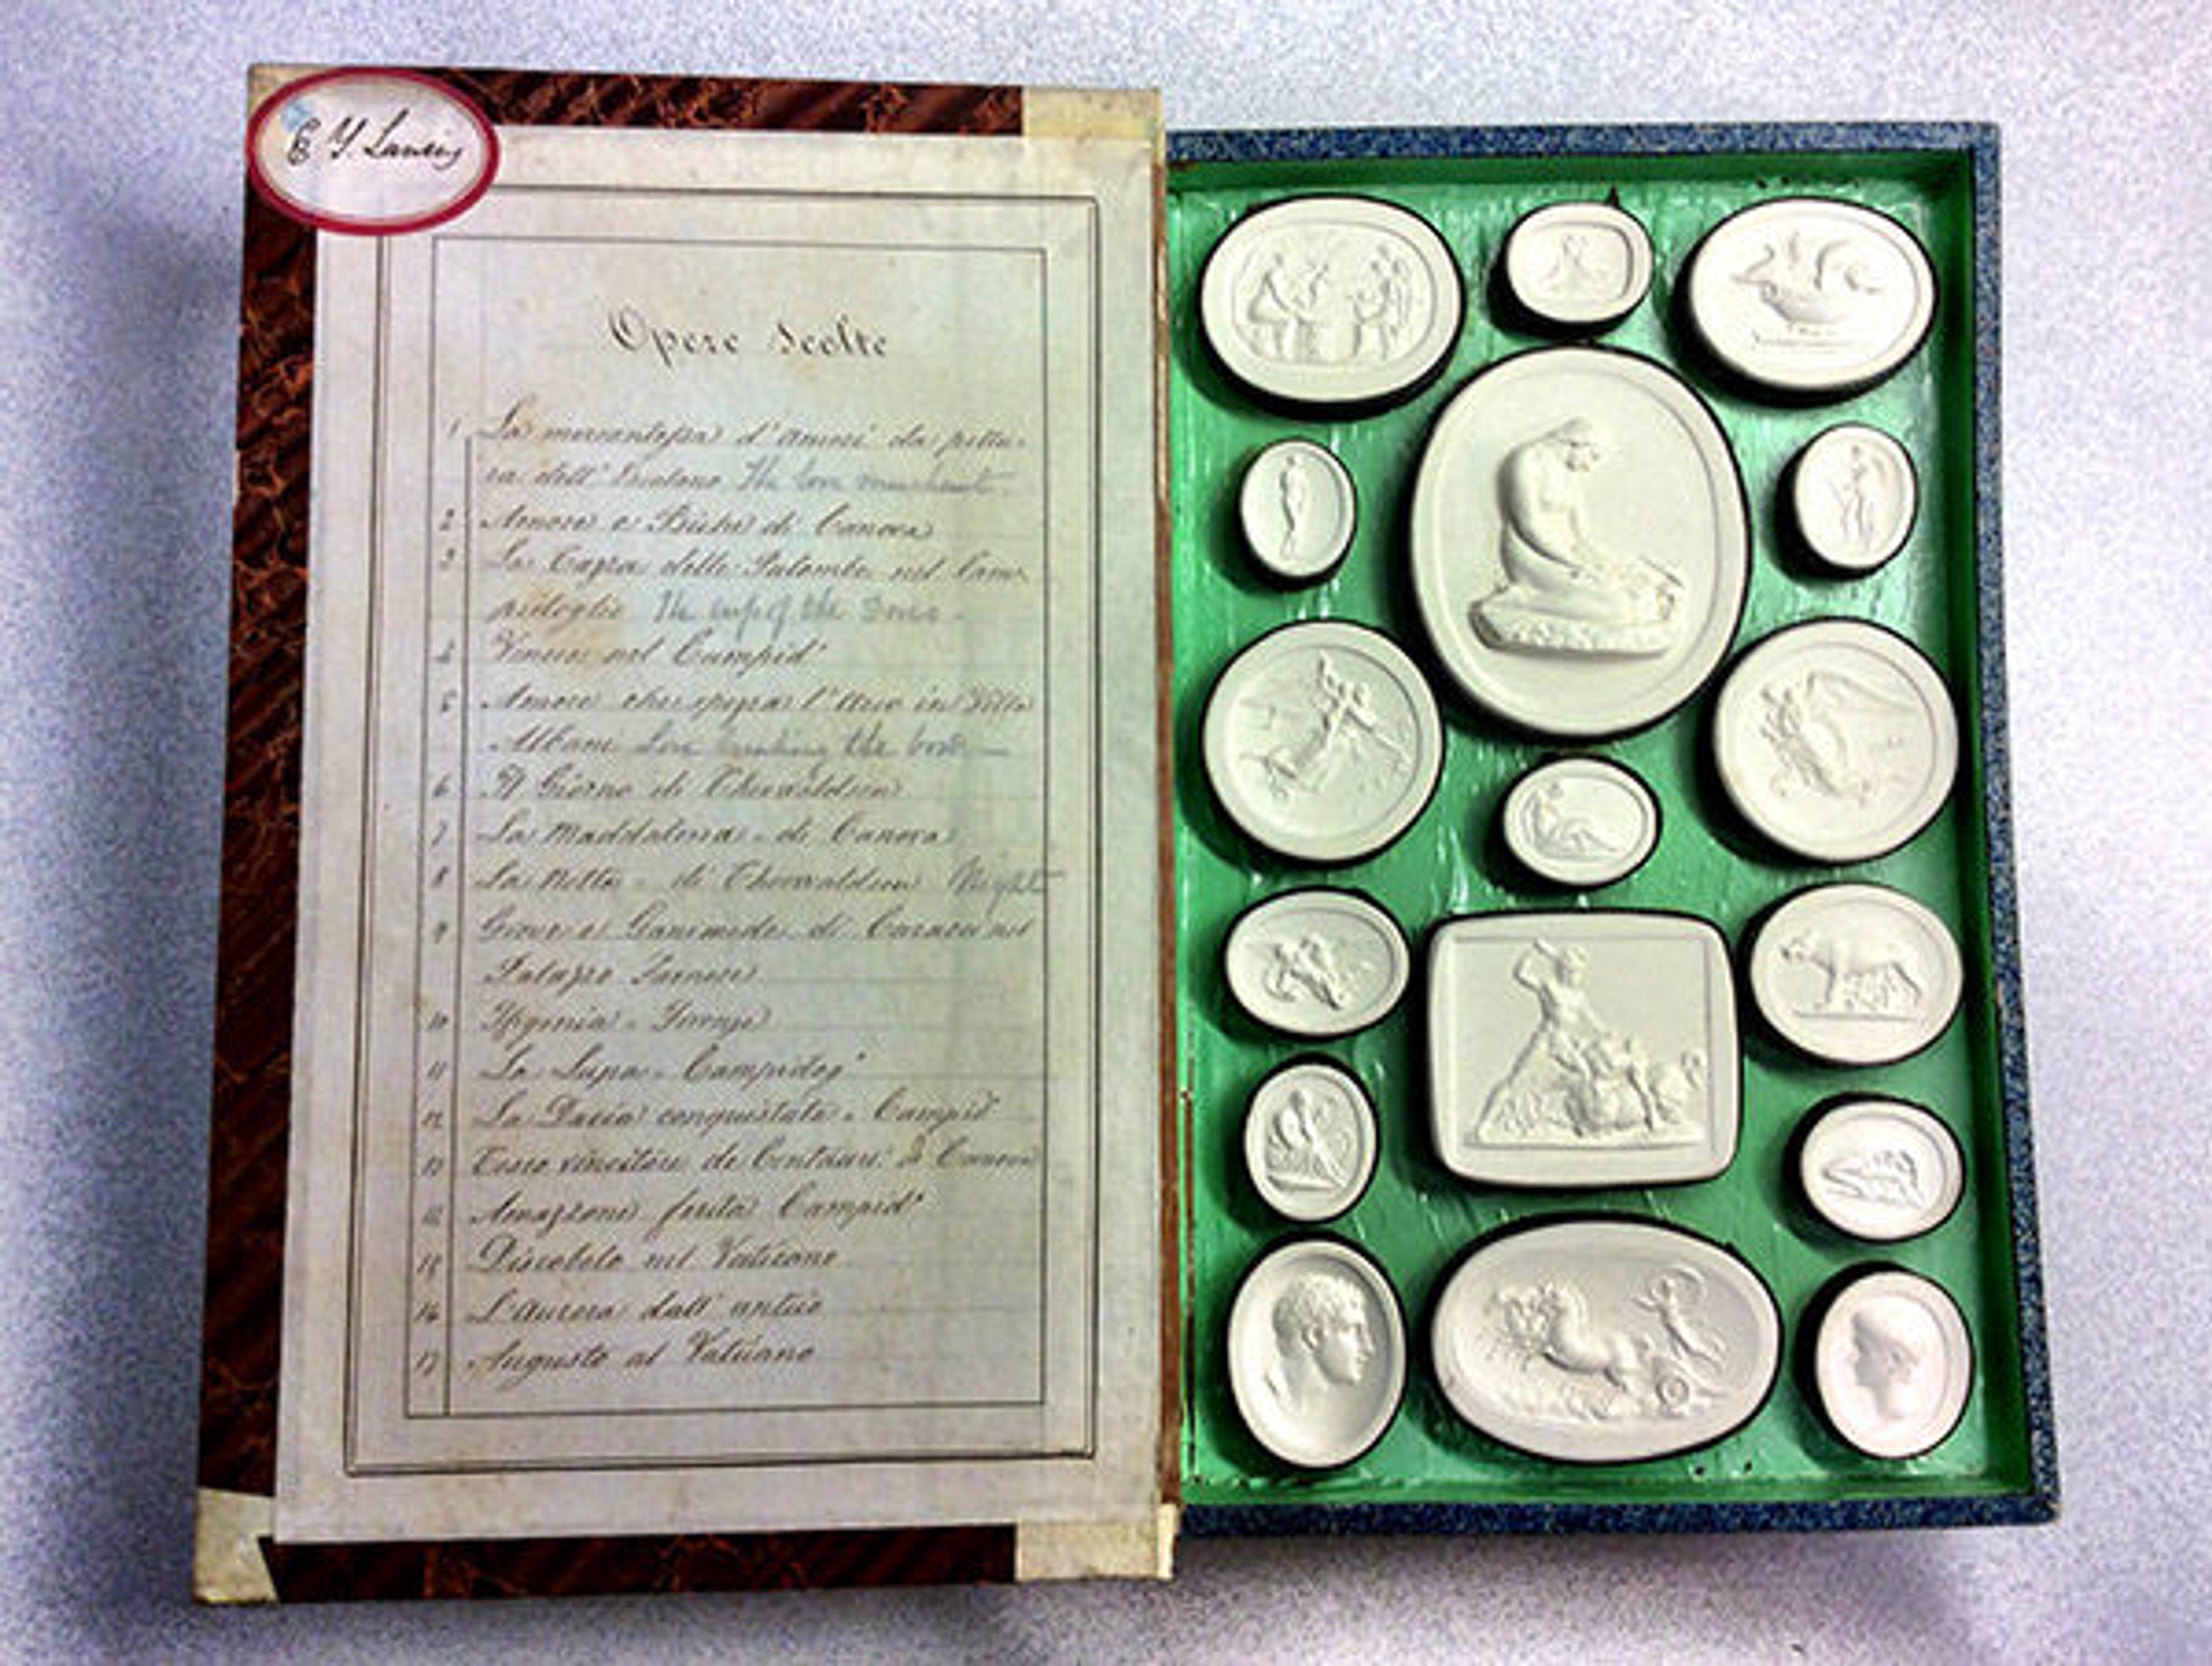 E Y. Lansing
Opere Scelte
1 La mercantessa d'amori da pittu-
ra dell' The love merchant
2 Amore e di Canova
3 La Tazza delle Palombe nel Cam-
pidoglio The cup of the Doves -
4 Venere nel Campid°
5 Amore che spezza l'Arco in Villa
Albani Love breaking the bow -
6 Il Giorno di Thorwaldsen
7 La Maddalena - di Canova
8 La Notte - di Thorwaldsen Night
9 Giove e Ganimede di Caracci nel
Palazzo Farnese
10 Ifigenia - Firenze
11 La Lupa - Campidog°
12 La Dacia conquistata - Campid°
13 Teseo vincitore de Centauri di Canova
Amazzone ferita Campid°
15 Discobolo nel Vaticano
16 L'Aurora dall' antico
17 Augusto al Vaticano